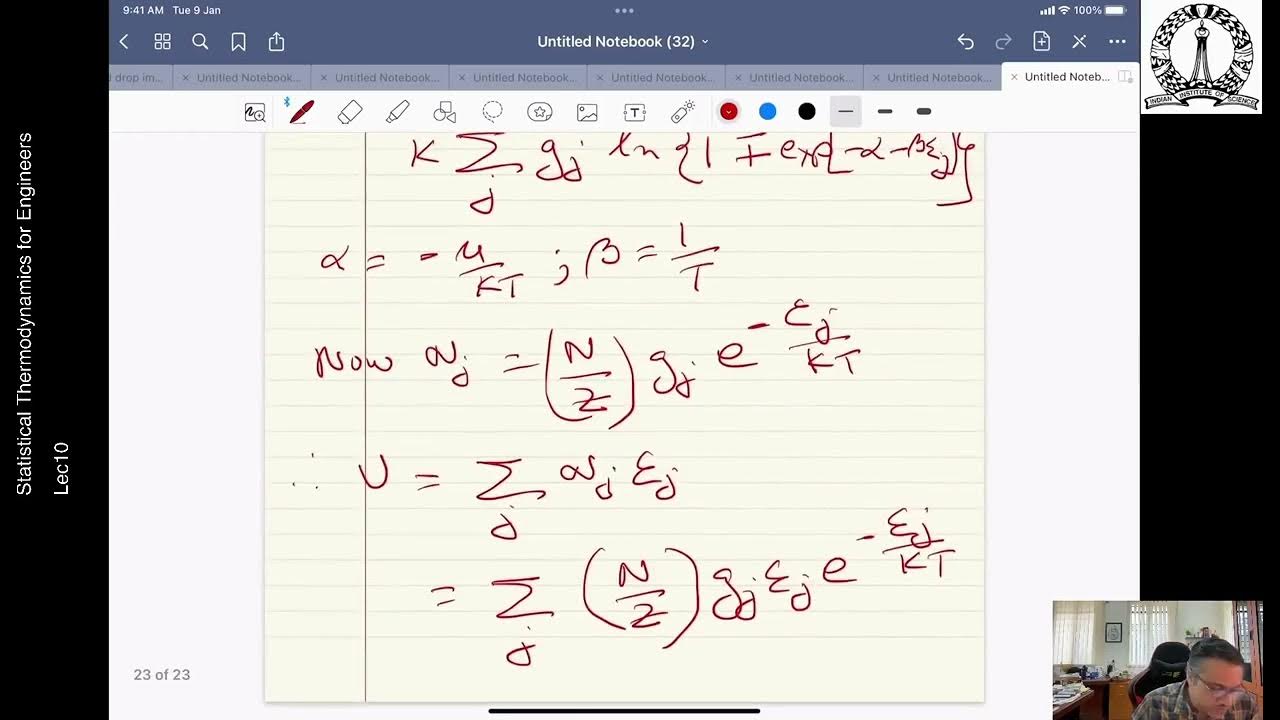 9:41 AM Tue 9 Jan
100%
Untitled Notebook (32)
d drop im...
Untitled Notebook...
Untitled Notebook...
Untitled Notebook...
Untitled Notebook...
Untitled Notebook...
Untitled Notebook...
Untitled Noteb...
INDIAN INSTITUTE OF SCIENCE
Statistical Thermodynamics for Engineers
Lec10
K Σ_j g_j ln{1 ∓ exp[-α-βε_j]}
α = -μ/KT ; β = 1/T
Now N_j = (N/Z) g_j e^(-ε_j/KT)
∴ U = Σ_j N_j ε_j
= Σ_j (N/Z) g_j ε_j e^(-ε_j/KT)
23 of 23